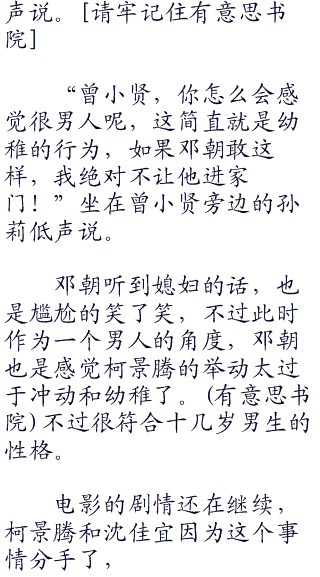 声说。[请牢记住有意思书
院]
“曾小贤，你怎么会感
觉很男人呢，这简直就是幼
稚的行为，如果邓朝敢这
样，我绝对不让他进家
门！”坐在曾小贤旁边的孙
莉低声说。
邓朝听到媳妇的话，也
是尴尬的笑了笑，不过此时
作为一个男人的角度，邓朝
也是感觉柯景腾的举动太过
于冲动和幼稚了。(有意思书
院)不过很符合十几岁男生的
性格。
电影的剧情还在继续，
柯景腾和沈佳宜因为这个事
情分手了，